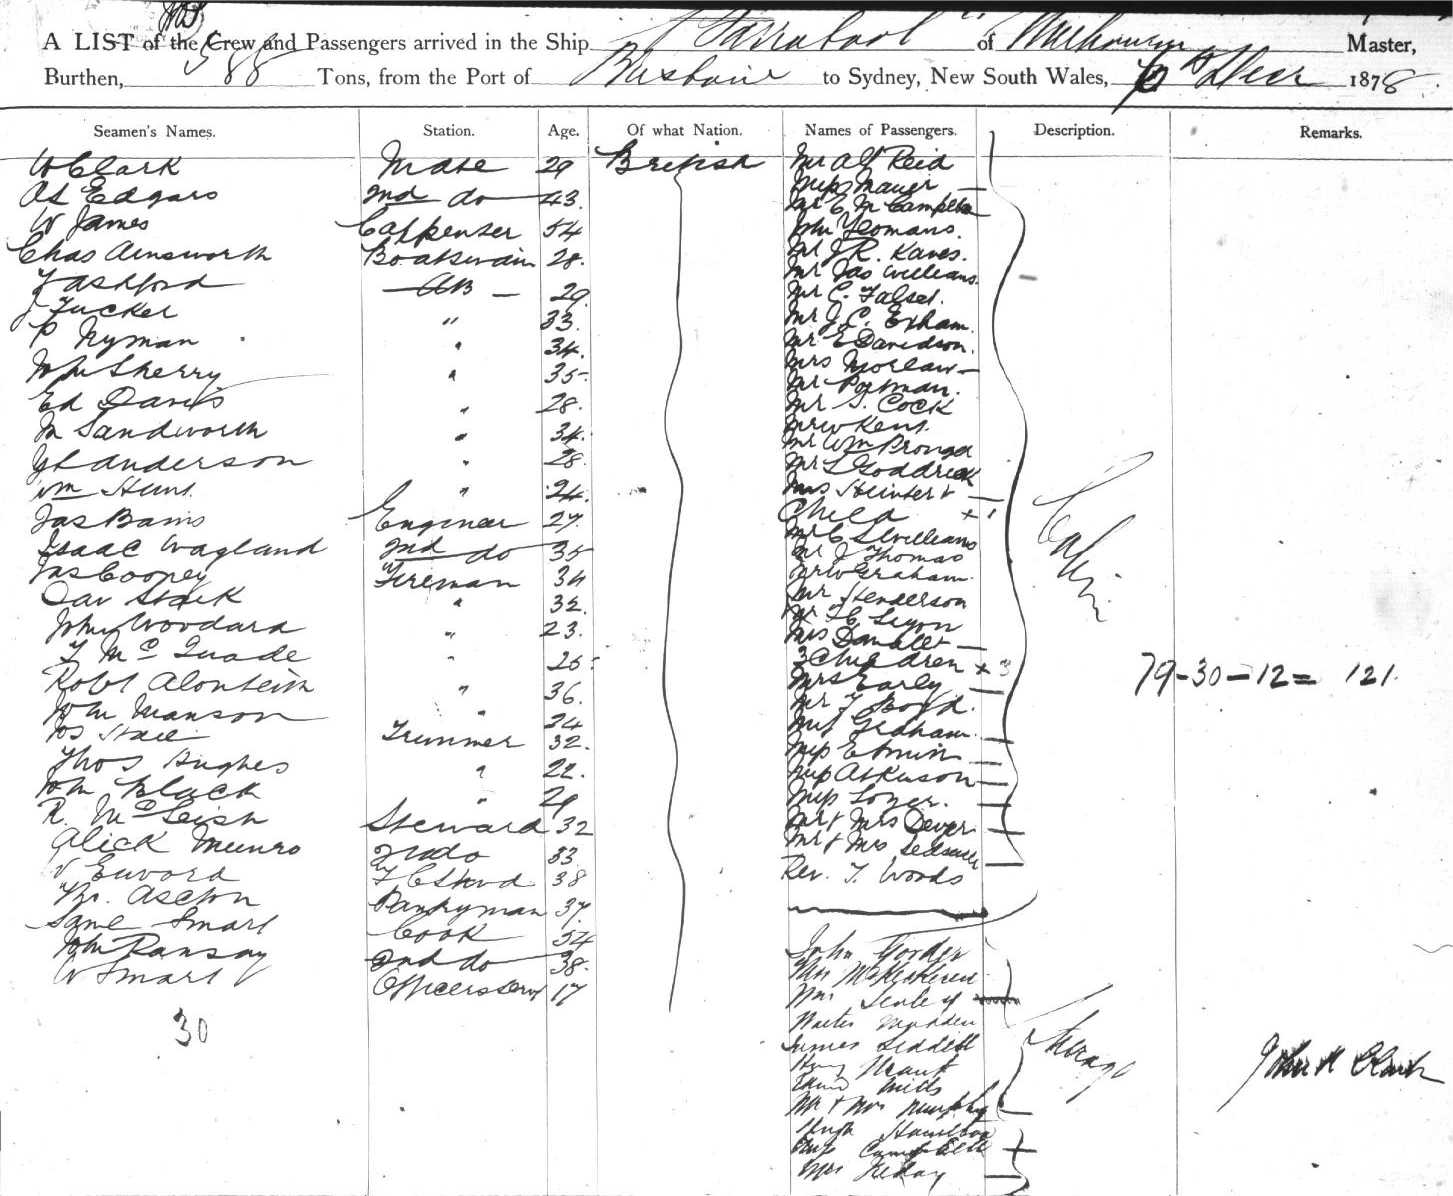 A LIST of the Crew and Passengers arrived in the Ship "Barrabool" of Melbourne Master,
Burthen, 588 Tons, from the Port of Brisbane to Sydney, New South Wales, Decr 1878
Seamen's Names. Station. Age. Of what Nation. Names of Passengers. Description. Remarks.
W Clark Mate 29 British
Al Edgars 2nd do 43
W James Carpenter 54
Chas Ainsworth Boatswain 28
T Ashford AB 29
J Tucker " 33
P Nyman " 34
Wm Sherry " 35
Ed Davis " 28
M Sandworth " 34
J L Anderson " 28
Wm Hunt " 24
Jas Bains Engineer 27
Isaac Wagland 2nd do 35
Jas Cooney Fireman 34
Dav Stark " 32
John Woodard " 23
T McQuade " 26
Robt Alonteith " 36
Wm Manson " 24
Trimmer 32
Thos Hughes " 22
Wm Black " 29
R. McLeish Steward 32
Alick Munro 2nd do 33
38
Ascton Pantryman 37
Saml Smart Cook 54
John Ramsay 2nd do 38
W Smart Officers Servt 17
30
Mr Alf Reid
Miss Mauer
Mr E M Campbell
John Yeomans
Mr J R. Kaves.
Mr Jas Williams
Mr C. Falset.
Mr J. C. Exham.
Mr E Davidson.
Mrs
Mr Portman.
Mr S. Cock
Mr W Kent.
Mr Wm
Mr L Goddrick
Mrs
Child + 1
Mr C S Williams
Mr J Thomas
Mr W Graham.
Mr Henderson
Mr
Mrs
3 Children + 3
Mrs Early
Mr F Boyd.
Mrs Graham.
Miss Edwin
Miss Atkinson
Miss
Mr & Mrs Dever
Mr & Mrs
Rev. T. Woods
Cabin
79-30-12= 121.
John Gorder
Mrs
Walter Madden
James Liddell
Henry Grant
Edwd Mills
Mr & Mrs Murphy
Hugh Hamilton
Miss Campbell
Mrs
Steerage
John K Clark